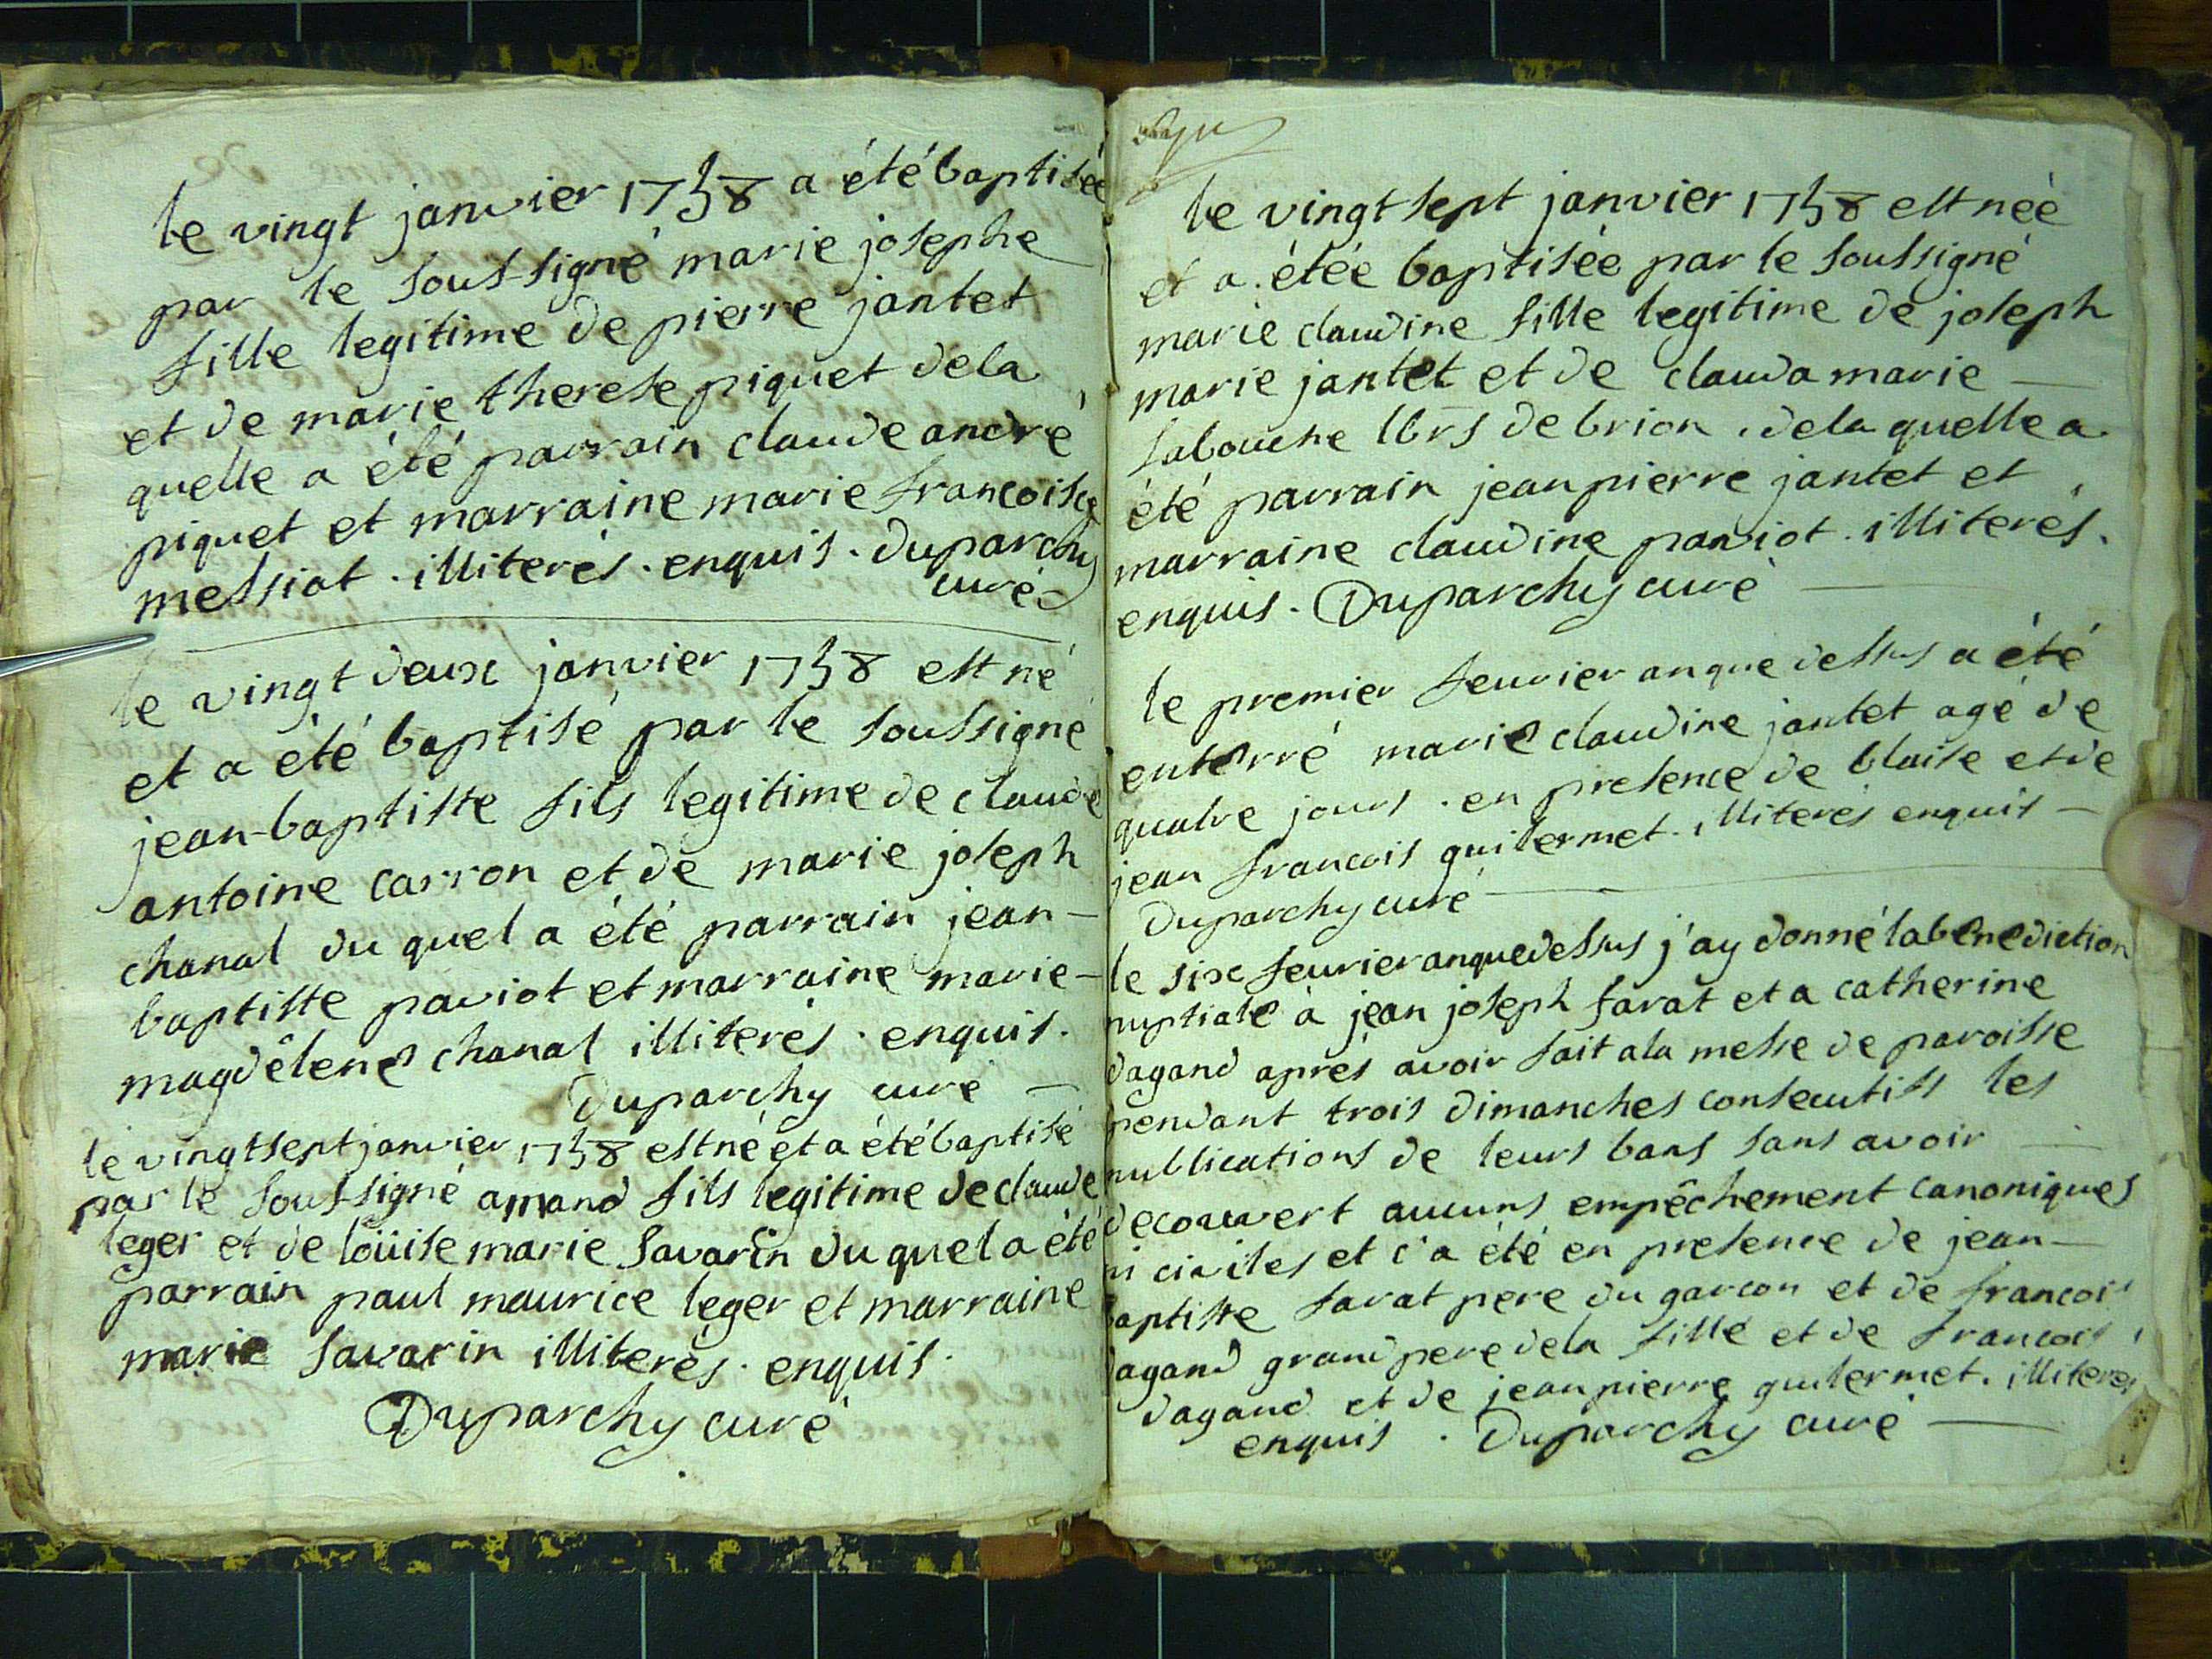 le vingt janvier 1758 a été baptisée
par le soussigné marie josephe
fille legitime de pierre jantet
et de marie therese piquet de la
quelle a été parrain claude andré
piquet et marraine marie francoise
messiat . illiterés . enquis . Duparchy
curé
le vingt deux janvier 1758 est né
et a été baptisé par le soussigné
jean-baptiste fils legitime de claude
antoine carron et de marie joseph
chanal du quel a été parrain jean-
baptiste paviot et marraine marie-
magdêlene chanal illiterés . enquis .
Duparchy curé
le vingt sept janvier 1758 est né et a été baptisé
par le soussigné amand fils legitime de claude
leger et de loüise marie savarin du quel a été
parrain paul maurice leger et marraine
marie savarin illiterés . enquis .
Duparchy curé
le vingt sept janvier 1758 est née
et a étée baptisée par le soussigné
marie claudine fille legitime de joseph
marie jantet et de clauda marie
labouche lbrs de brion . de la quelle a
été parrain jean pierre jantet et
marraine claudine paviot . illiterés .
enquis . Duparchy curé
le premier feuvrier an que dessus a été
enterré marie claudine jantet agé de
quatre jours . en presence de blaise et de
jean francois guilermet . illiterés enquis
Duparchy curé
le six feuvrier an que dessus j'ay donné la benediction
nuptiale à jean joseph favat et a catherine
dagand aprés avoir fait a la messe de paroisse
pendant trois dimanches consecutifs les
publications de leurs bans sans avoir
decouvert aucuns empêchement canoniques
ni civiles et c'a été en presence de jean-
baptiste favat pere du garcon et de francois
dagand grand pere de la fille et de francois
dagand et de jean pierre guilermet . illiterés
enquis . Duparchy curé